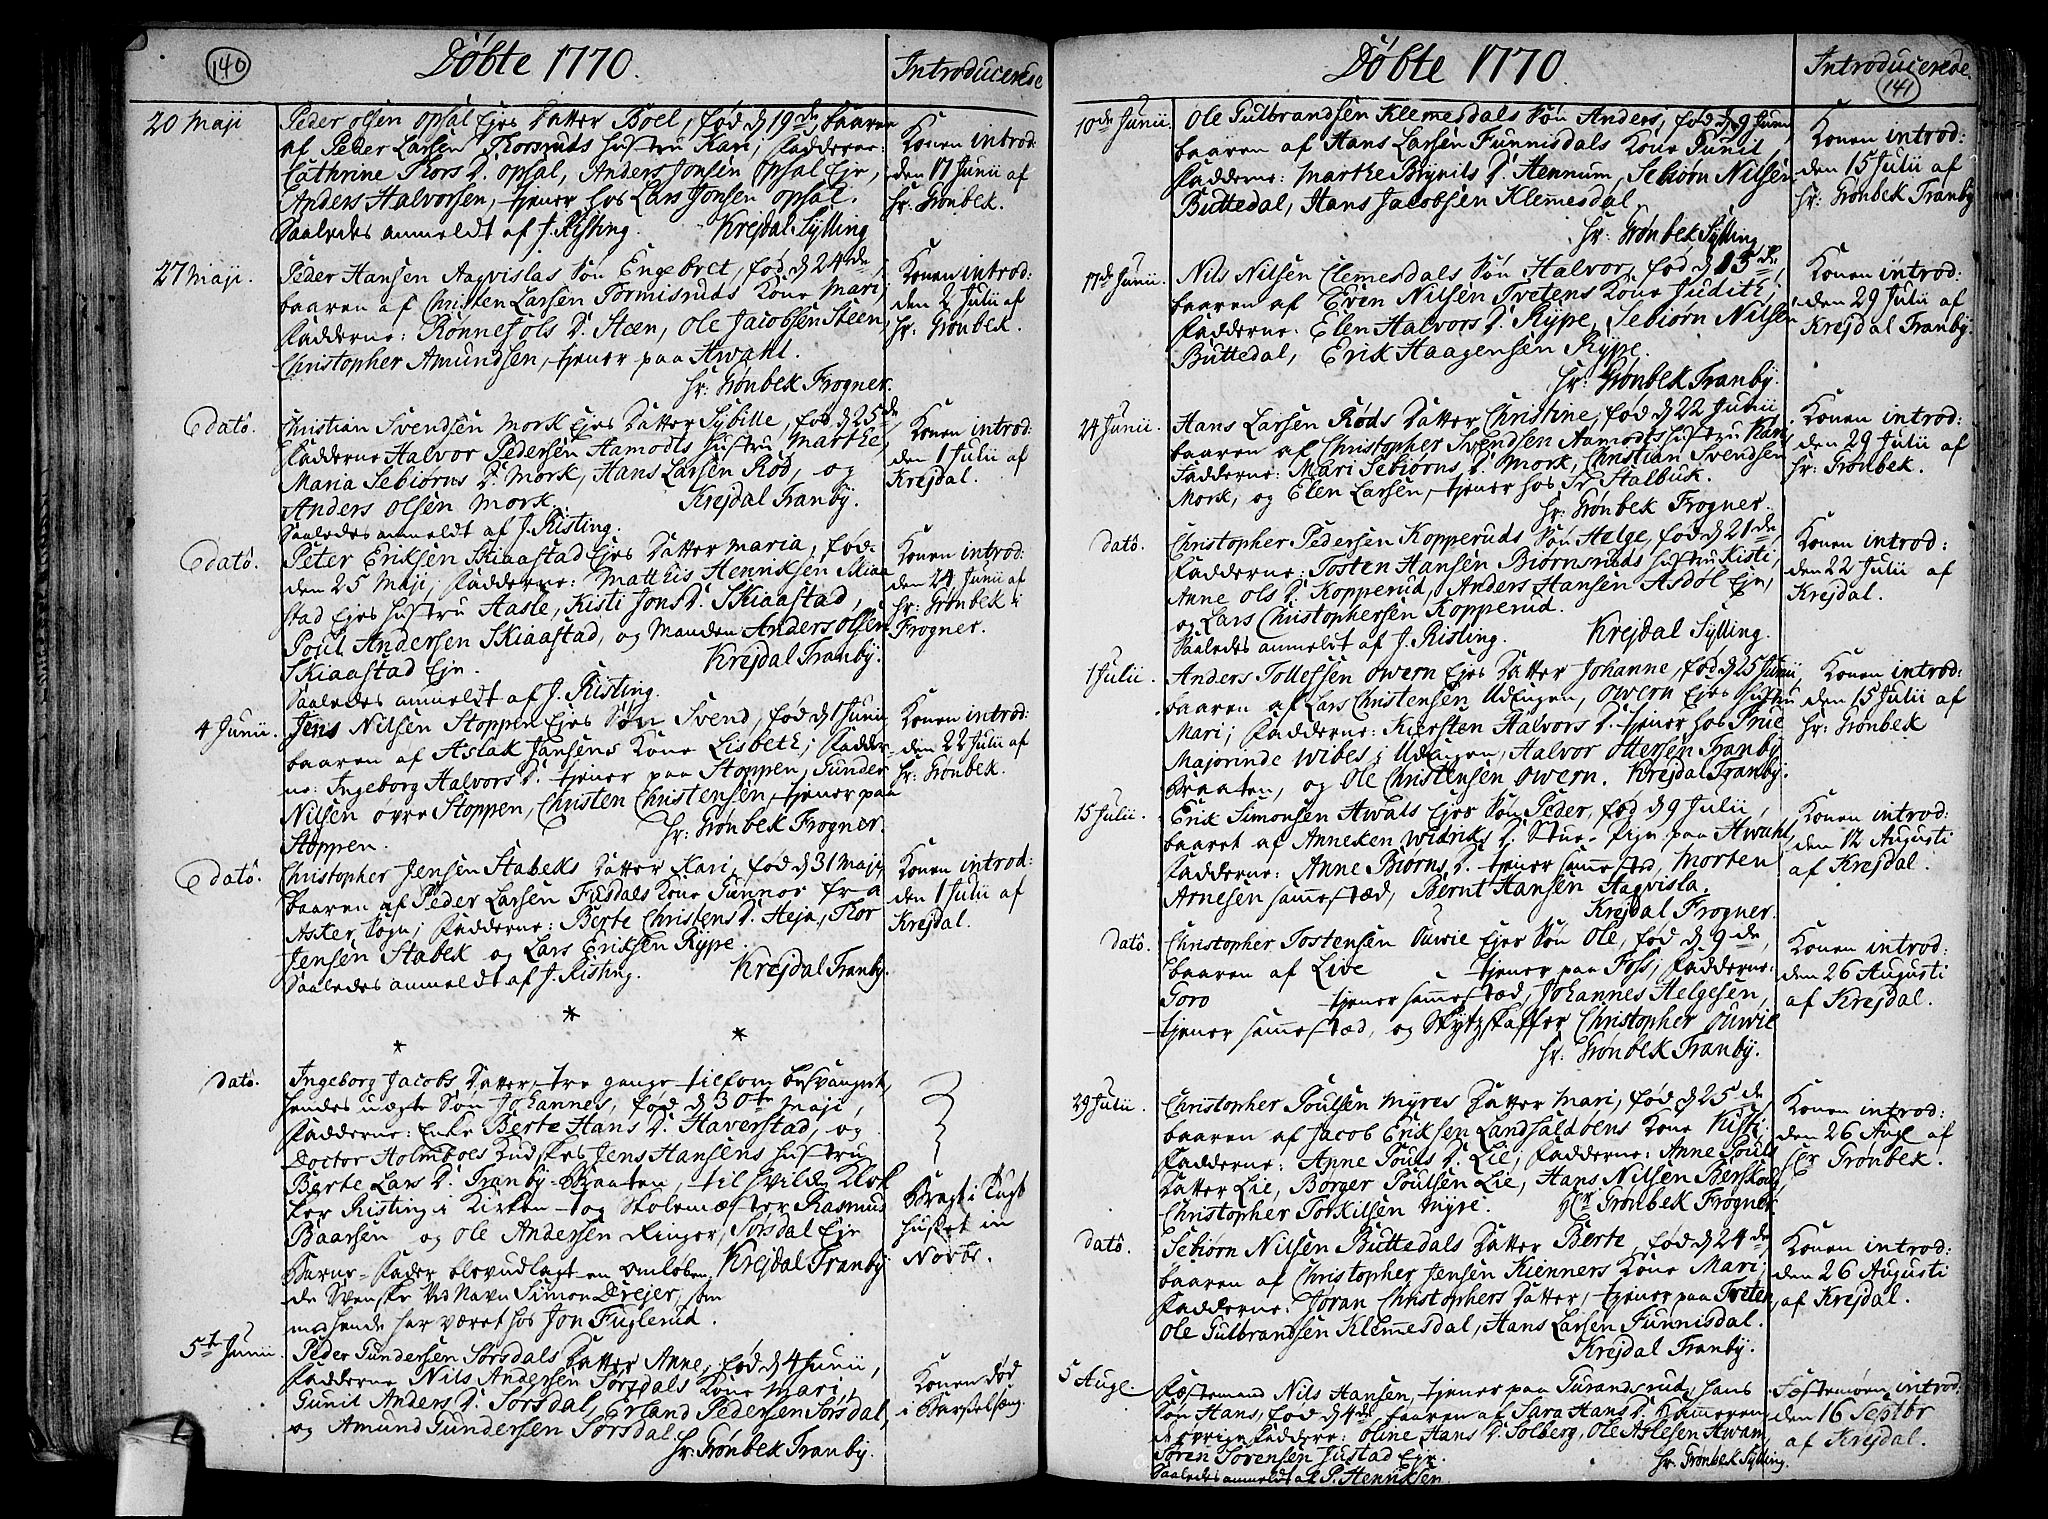 140
Döbte 1770.
Introducerede
20 Maji
Peder Olsen Opsal Ejes Datter Boel, fød d 19de, baaren
af Peder Larsen Thorsruds Hustru Kari; Fadderne:
Cathrine Thors D. Opsal, Anders Jonsen Opsal Eje,
Anders Halvorsen, tjener hos Lars Jonsen Opsal.
Saaledes anmeldt af J. Risting. Krejdal Sylling
Konen introd:
den 17 Junii af
Hr: Grönbek.
27 Maji.
Peder Hansen Aagvislas Søn Engebret, fød d 24de,
baaren af Christen Larsen Tormisruds Kone Mari;
Fadderne: Rönnes Ols D. Steen, Ole Jacobsen Steen,
Christopher Amundsen, tjener paa Hwahl.
Hr: Grönbek Frogner.
Konen introd:
den 2 Julii af
Hr: Grönbek.
dato.
Christian Svendsen Mork Ejes Datter Sybille, fød d 25de,
Fadderne Halvor Pedersen Aamodts Hustru Marthe,
Maria Sebiørns D. Mork, Hans Larsen Rød, og
Anders Olsen Mork. Krejdal Tranby.
Saaledes anmeldt af J. Risting.
Konen introd:
den 1 Julii af
Krejdal.
dato.
Peter Eriksen Skiaastad Ejes Datter Maria, fød
den 25 Maji, Fadderne: Matthis Henriksen Skiaa
stad Ejes Hustru Aasle, Kisti Jons D. Skiaastad,
Poul Andersen Skiaastad, og Manden Anders Olsen
Skiaastad Eje. Krejdal Tranby.
Saaledes anmeldt af J. Risting.
Konen introd:
den 24 Junii af
Hr: Grönbek i
Frogner.
4 Junii.
Jens Nilsen Stoppen Ejes Søn Svend, fød d 1 Junii
baaren af Aslak Jansens Kone Lisbeth; Fadder-
ne: Ingeborg Halvors D. tjener paa Stoppen, Gunder
Nilsen øvre Stoppen, Christen Christensen, tjener paa
Stoppen. Hr: Grönbek Frogner.
Konen introd:
den 22 Julii af
Hr: Grönbek.
dato.
Christopher Jensen Stabeks Datter Kari, fød d 31 Maji,
baaren af Peder Larsen Fusdals Kone Gunnor fra
Asker Sogn; Fadderne: Berte Christens D. Heja, Thor
Jensen Stabek og Lars Eriksen Rype.
Saaledes anmeldt af J. Risting. Krejdal Tranby.
Konen introd:
den 1 Julii af
Krejdal.
* * *
dato.
Ingeborg Jacobs Datter, tre gange tilforn besvangret,
hendes uægte Søn Johannes, fød d 30te Maji,
Fadderne: Enke Berte Hans D. Haverstad, og
Doctor Holmboes Kudskes Jens Hansens Hustru
Berte Lars D. Tranby-Braaten, til hvilde Klok
ker Risting i Kirken tog Skolemæster Rasmus
Baarsen og Ole Andersen Ringer, Sørsdal Eje
Barne-Fader blev udlagt en omløben Krejdal Tranby
de Svenske ved Navn Simon Drejer, som
med hende har været hos Jon Fuglerud.
Bragt i Tugt
huset in
Novbr.
5te Junii.
Peder Gundersen Sørsdals Datter Anne, fød d 4 Junii,
Fadderne Nils Andersen Sørsdals Kone Mari,
Gunil Anders D. Sørsdal, Erland Pedersen Sørsdal,
og Amund Gundersen Sørsdal.
Hr: Grönbek Tranby.
Konen død
i Barselseng.
Döbte 1770.
Introducerede
141
10de Junii.
Ole Gulbrandsen Klemesdals Søn Anders, fød d 9 Junii
baaren af Hans Larsen Funnisdals Kone Gunil
Fadderne: Marthe Brynils D. Hennum, Sebiørn Nilsen
Buttedal, Hans Jacobsen Klemesdal.
Hr: Grönbek Sylling
Konen introd:
den 15 Julii af
Hr: Grönbek Tranby
17de Junii.
Nils Nilsen Clemesdals Søn Halvor, fød d 13de,
baaren af Even Nilsen Tvetens Kone Judith;
Fadderne: Elen Halvors D. Rype, Sebiørn Nilsen
Buttedal, Erik Haagensen Rype.
Hr: Grönbek Tranby.
Konen introd:
den 29 Julii af
Krejdal Tranby.
24 Junii.
Hans Larsen Røds Datter Christine, fød d 22 Junii
baaren af Christopher Svendsen Aamodts Hustru Kari,
Fadderne: Mari Sebiørns D. Mork, Christian Svendsen
Mork, og Elen Larsen, tjener hos Sr Stalbuk.
Hr: Grönbek Frogner.
Konen introd:
den 29 Julii af
Hr: Grönbek.
dato.
Christopher Pedersen Kopperuds Søn Helge, fød d 21de
Fadderne: Tosten Hansen Biørnsruds Hustru Kisti,
Anne Ols D. Kopperud, Anders Hansen Asdøl Eje,
og Lars Christophersen Kopperud.
Saaledes anmeldt af J. Risting. Krejdal Sylling.
Konen introd:
den 22 Julii af
Krejdal.
1 Julii.
Anders Tollefsen Owern Ejes Datter Johanne, fød d 25 Junii,
baaren af Lars Christensen Udengen, Owern Ejes Hustru
Mari; Fadderne: Kiersten Halvors D. tjener hos Frue
Majorinde Wibes i Udengen, Halvor Ottersen Tranby
Braaten, og Ole Christensen Owern. Krejdal Tranby.
Konen introd:
den 15 Julii af
Hr: Grönbek
15 Julii.
Erik Simonsen Hwals Ejes Søn Peder, fød d 9 Julii,
baaret af Anneken Widriks D. Stue-Pige paa Hwahl,
Fadderne: Anne Biørns D. tjener sammested, Morten
Arnesen sammested, Bernt Hansen Aagvisla.
Krejdal Frogner.
Konen introd:
den 12 Augusti
af Krejdal.
dato.
Christopher Tostensen Ouwie Ejes Søn Ole, fød d 9de,
baaren af Live tjener paa Foss; Fadderne:
Goro tjener sammested, Johannes Helgesen,
tjener sammested, og Skydskaffer Christopher Ouwie
Hr: Grönbek Tranby.
Konen introd:
den 26 Augusti
af Krejdal.
29 Julii.
Christopher Poulsen Myres Datter Mari, fød d 25de,
baaren af Jacob Eriksen Landfaldøens Kone Kisti
Fadderne: Anne Pouls D. Lie; Fadderne: Anne Pouls
Datter Lie, Børger Poulsen Lie, Hans Nilsen Berskoug
Christopher Torkilsen Myre. Hr Grönbek Frogner
Konen introd:
den 26 Augl af
Hr Grönbek.
dato.
Sebiørn Nilsen Buttedals Datter Berte, fød d 24de,
baaren af Christopher Jensen Kienners Kone Mari;
Fadderne: Joran Christophers Datter, tjener paa Tveten,
Ole Gulbrandsen Klemesdal, Hans Larsen Funnisdal.
Krejdal Tranby.
Konen introd:
den 26 Augusti
af Krejdal.
5 Augl.
Festemand Nils Hansen, tjener paa Gurandsrud, hans
Søn Hans, fød d 4de baaren af Sara Hans D. Hammeren
de øvrige Faddere: Oline Hans D. Solberg, Ole Aslesen Hwam,
Søren Sørensen Justad Eje. Hr. Grönbek Sylling.
Saaledes anmeldt af P. Henriksen
Festemøen introd:
den 16 Septbr
af Krejdal.